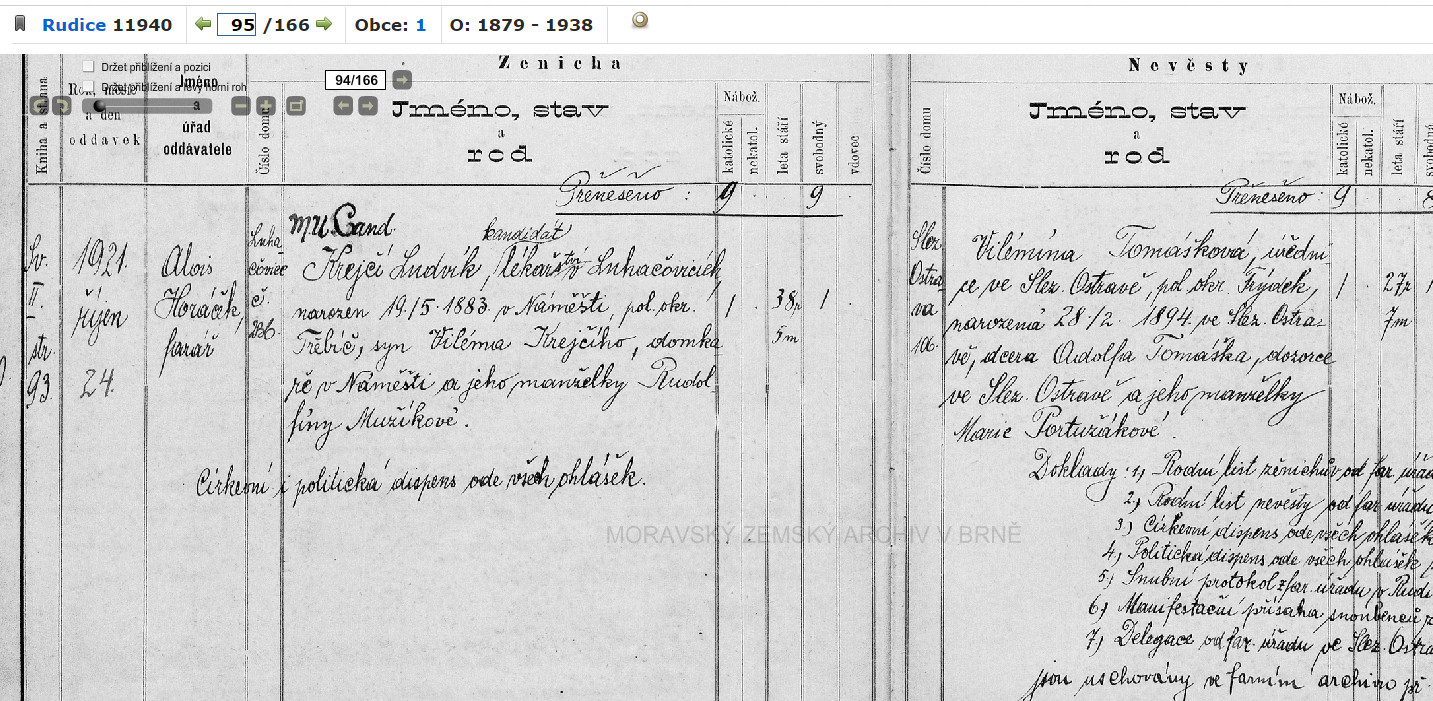 Rudice 11940 95 /166 Obce: 1 O: 1879 - 1938
Držet přiblížení a pozici
Držet přiblížení a levý horní roh
94/166
Ženicha
Kniha a strana
Rok, měsíc
a den
oddavek
Jméno
a
úřad
oddávatele
Číslo domu
Jméno, stav
a
rod
Nábož.
katolické
nekatol.
leta stáří
svobodný
vdovec
Přeneseno : 9 . 9 .
Sv.
II.
str.
93.
1921.
říjen
24.
Alois
Horáček,
farář
Luha-
čovice
č.
236
MU Cand.
kandidát
Krejčí Ludvík, lékařství v Luhačovicích
narozen 19./5. 1883. v Náměšti, pol. okr.
Třebíč, syn Viléma Krejčího, domka-
ře v Náměšti a jeho manželky Rudol-
fíny Mužíkové.
1 . 38r 1 .
5m
Církevní i politická dispens ode všech ohlášek.
Nevěsty
Číslo domu
Jméno, stav
a
rod
Nábož.
katolické
nekatol.
leta stáří
Přeneseno : 9
Slez.
Ostra-
va
Vilémína Tomášková, úředni-
ce ve Slez. Ostravě, pol. okr. Frýdek,
narozená 28./2. 1894. ve Slez. Ostra-
vě, dcera Adolfa Tomáška, dozorce
ve Slez. Ostravě a jeho manželky
Marie Portužákové.
1 . 27r
7m
Doklady: 1) Rodní list ženichův od far. úřadu
2) Rodní list nevěsty od far. úřadu
3) Církevní dispens ode všech ohlášek
4) Politická dispens ode všech ohlášek
5) Snubní protokol z far. úřadu v Rudi
6) Manifestační přísaha snoubenců
7) Delegace od far. úřadu ve Slez. Ostra
jsou uschovány ve farním archivu
MORAVSKÝ ZEMSKÝ ARCHIV V BRNĚ